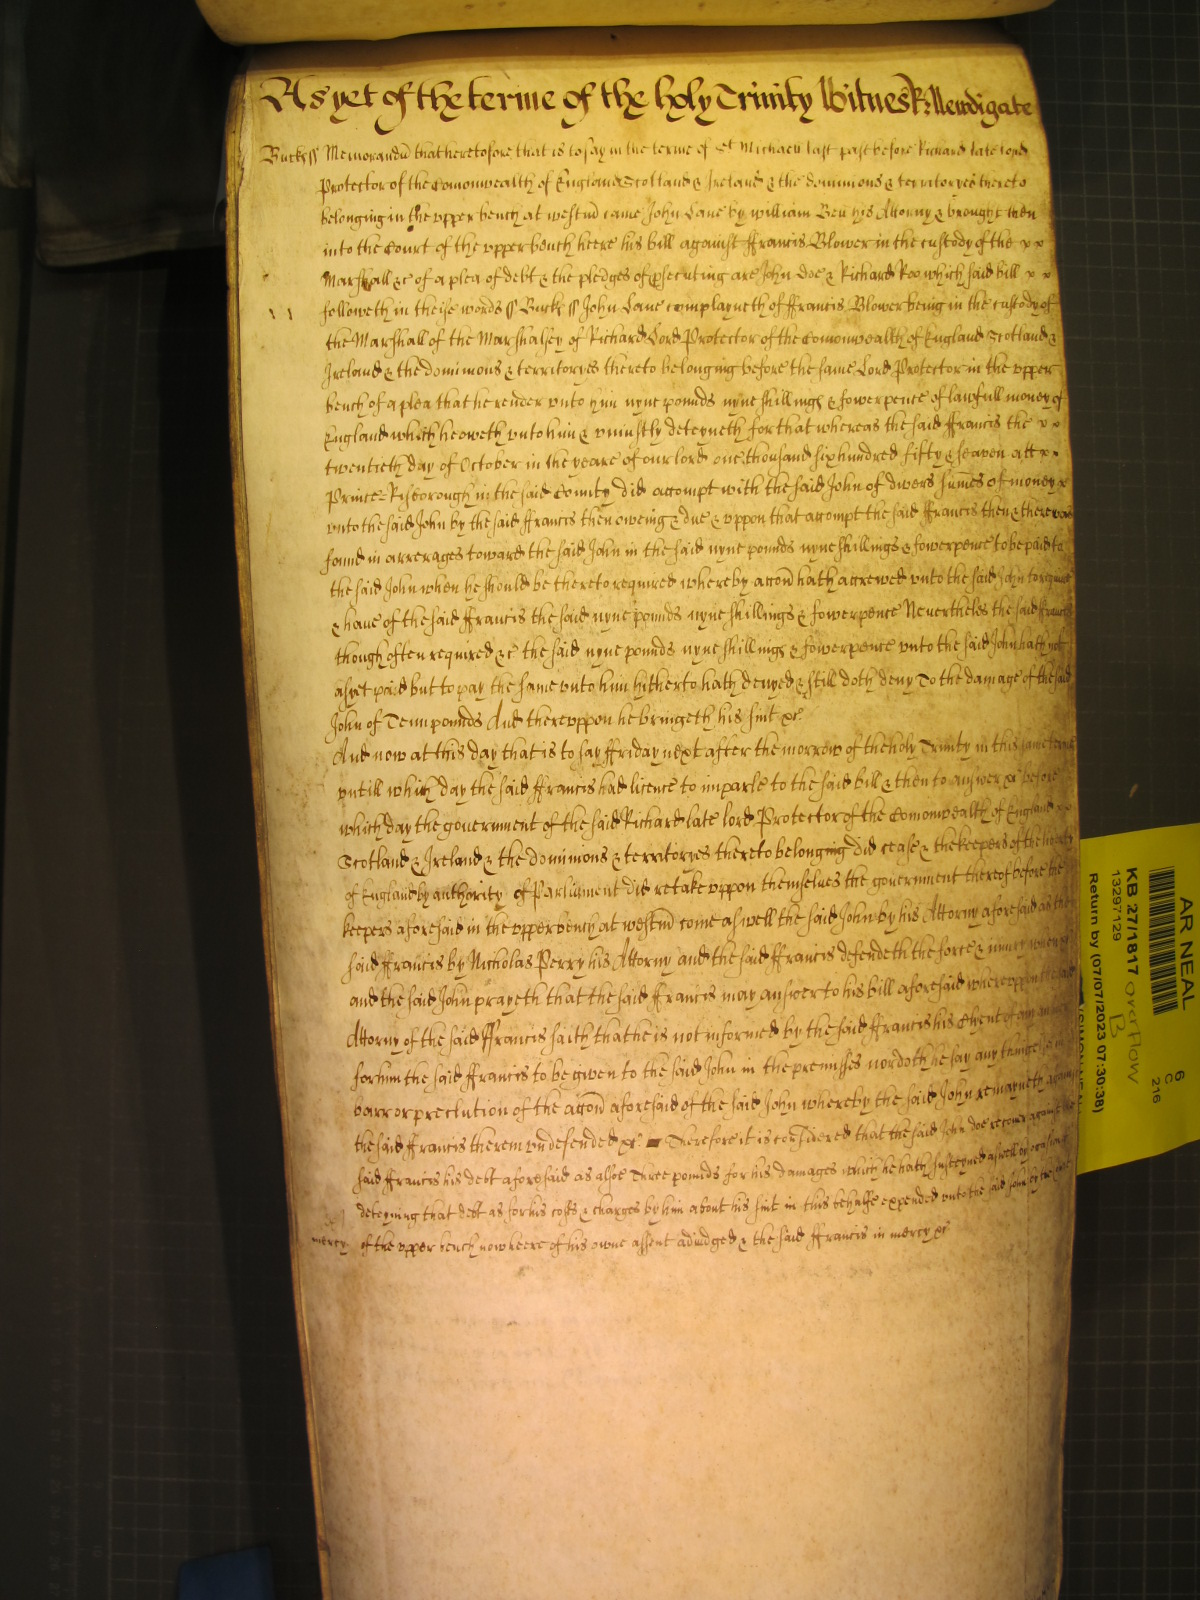 As yet of the terme of the holy Trinity Witnes R: Newdigate
Bucks ss Memorandu that heretofore that is to say in the terme of St Michaell last past before Richard late lord
Protector of the Comonwealth of England Scotland & Ireland & the dominions & territoryes thereto
belonging in the upper bench at westmr came John Lane by william Bell his Attorny & brought then
into the Court of the upper bench heere his bill against ffrancis Blower in the custody of the x x
Marshall &c of a plea of debt & the pledges of psecuting are John Doe & Richard Roo which said bill x x
followeth in theise words ss Buck ss John Lane complayneth of ffrancis Blower being in the custody of
the Marshall of the Marshalsey of Richard Lord Protector of the Comonwealth of England Scotland &
Ireland & the dominions & territoryes thereto belonging before the same Lord Protector in the upper
bench of a plea that he render unto him nyne pounds nyne shillings & fowerpence of lawfull money of
England which he oweth unto him & uniustly deteyneth for that whereas the said ffrancis the x x
twentieth day of October in the yeare of our lord one thousand six hundred fifty & seaven att x x
Princes Risborough in the said County did accompt with the said John of divers sumes of money x
unto the said John by the said ffrancis then oweing & due & uppon that accompt the said ffrancis then & there was
found in arrerages toward the said John in the said nyne pounds nyne shillings & fowerpence to be paid to
the said John when he should be thereto required whereby accon hath accrewed unto the said John to require
& have of the said ffrancis the said nyne pounds nyne shillings & fowerpence Nevertheles the said ffrancis
though often required &c the said nyne pounds nyne shillings & fowerpence unto the said John hath not
as yet paid but to pay the same unto him hitherto hath denyed & still doth deny To the damage of the said
John of Tenn pounds And thereuppon he bringeth his suit &c
And now at this day that is to say ffriday next after the morrow of the holy Trinity in this same terme
untill which day the said ffrancis had licence to imparle to the said bill & then to answer &c before
which day the government of the said Richard late lord Protector of the Comonwealth of England x x
Scotland & Ireland & the dominions & territoryes thereto belonging did cease & the keepers of the liberty
of England by authority of Parliament did retake uppon themselves the government thereof before the
keepers aforesaid in the upper bench at westmr come aswell the said John by his Attorny aforesaid as the
said ffrancis by Nicholas Perry his Attorny and the said ffrancis defendeth the force & iniury when &c
and the said John prayeth that the said ffrancis may answer to his bill aforesaid whereuppon the said
Attorny of the said ffrancis saith that he is not informed by the said ffrancis his Clyent of any answer
for him the said ffrancis to be given to the said John in the premisses nor doth he say any thinge in
barr or preclution of the accon aforesaid of the said John whereby the said John remayneth against
the said ffrancis therein undefended &c Therefore it is considered that the said John doe recover against the
said ffrancis his debt aforesaid as alsoe Three pounds for his damages which he hath susteyned aswell by occasion of
deteyning that debt as for his costs & charges by him about his suit in this behalfe expended unto the said John by the
mercy of the upper bench now heere of his owne assent adiudged & the said ffrancis in mercy &c
AR NEAL
KB 27/1817 overflow
B
13297129
Return by (07/07/2023 07:30:38)
6
C
216